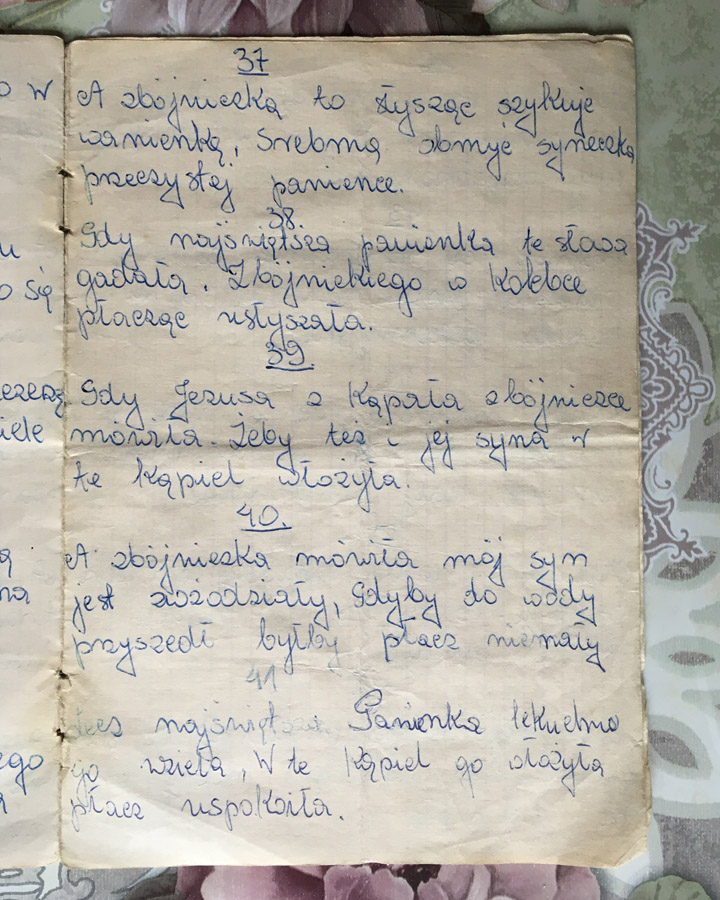 o w
u
o się
iele
ą
na
ego
37
A zbójniczka to słysząc szykuje
wanienką, Srebrną obmyć syneczka
przeczystej panience.
38.
Gdy najświętsza panienka te słowa
gadała. Zbójnickiego w kolebce
płacząc usłyszała.
39.
Gdy Jezusa z Kąpała zbójniczce
mówiła. Żeby też i jej syna w
te kąpiel włożyła.
40.
A zbójniczka mówiła mój syn
jest zwzodziały, Gdyby do wody
przyszedł byłby płacz niemały
41
Lecz najświętsza Panienka
go wzieła, W te Kąpiel go włożyła
płacz uspokoiła.